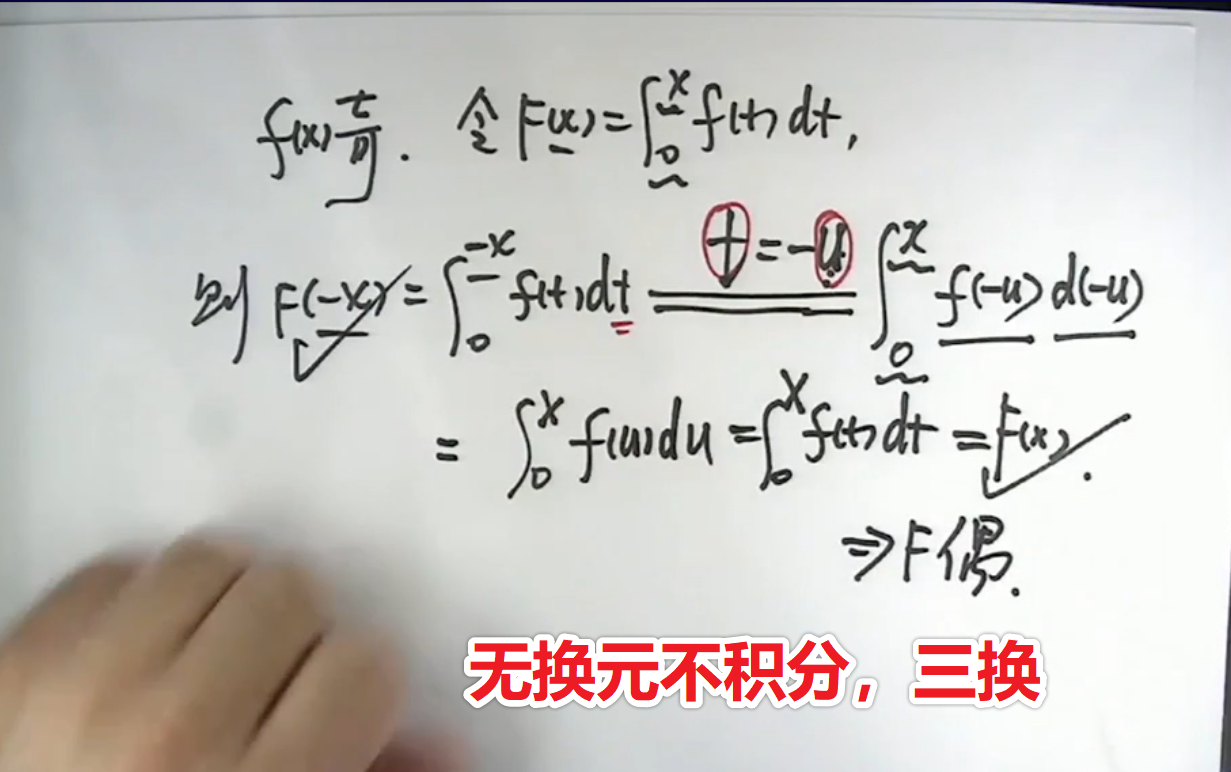 f(x)奇. 令F(x)=∫₀ˣf(t)dt,
则 F(-x)=∫₀⁻ˣf(t)dt t=-u ∫₀ˣf(-u)d(-u)
=∫₀ˣf(u)du=∫₀ˣf(t)dt=F(x).
⇒F偶.
无换元不积分，三换